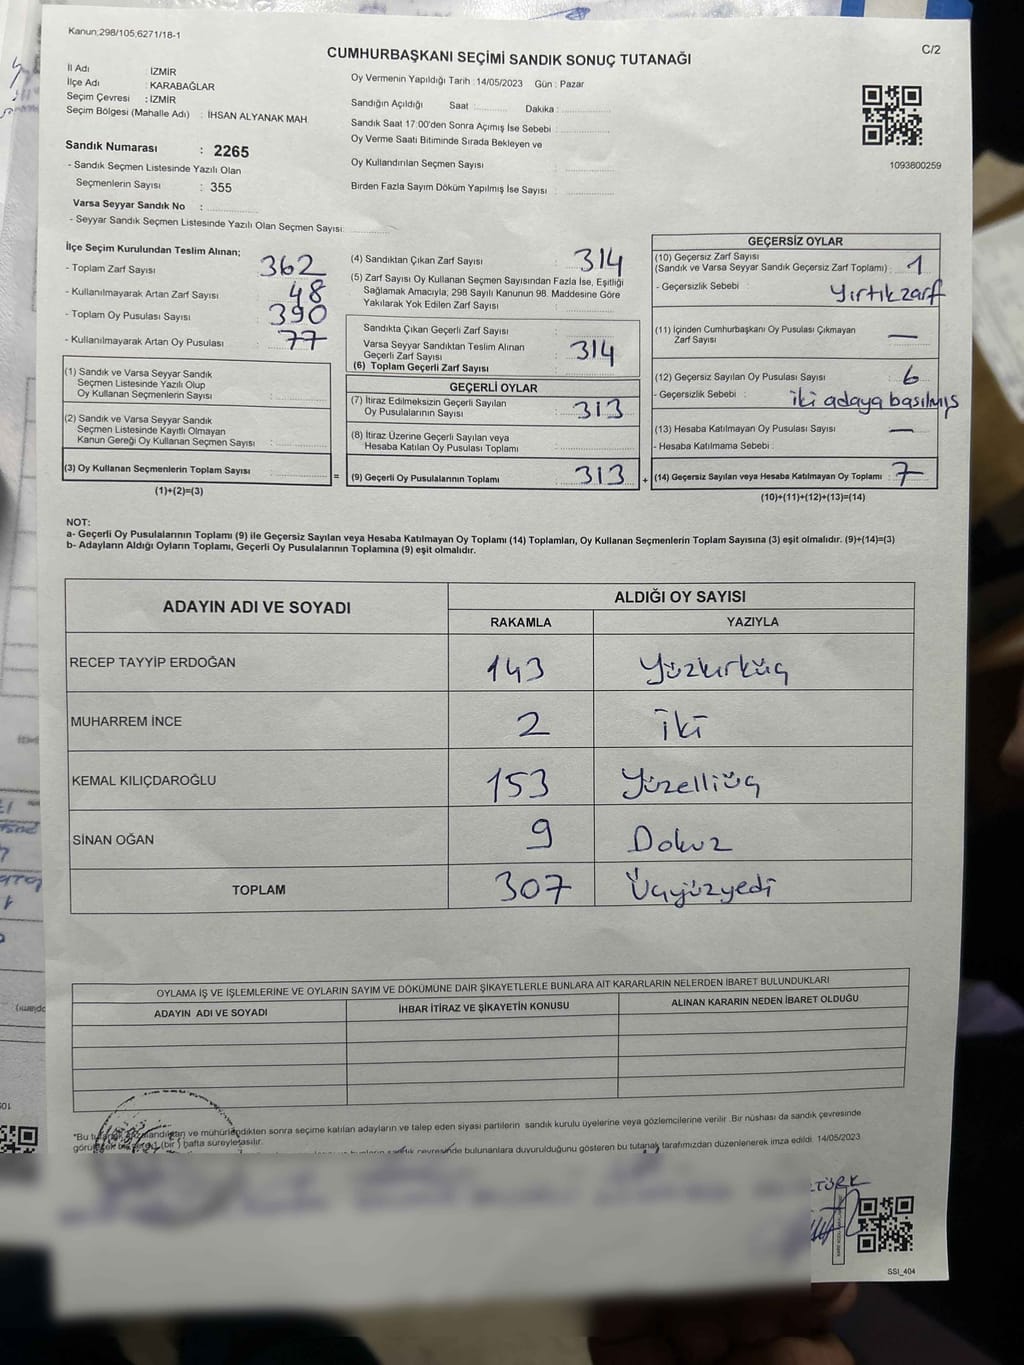 Kanun;298/105,6271/18-1
C/2
CUMHURBAŞKANI SEÇİMİ SANDIK SONUÇ TUTANAĞI
İl Adı : İZMİR
İlçe Adı : KARABAĞLAR
Seçim Çevresi : İZMİR
Seçim Bölgesi (Mahalle Adı) : İHSAN ALYANAK MAH
Sandık Numarası : 2265
- Sandık Seçmen Listesinde Yazılı Olan
Seçmenlerin Sayısı : 355
Varsa Seyyar Sandık No :
- Seyyar Sandık Seçmen Listesinde Yazılı Olan Seçmen Sayısı:
Oy Vermenin Yapıldığı Tarih : 14/05/2023 Gün : Pazar
Sandığın Açıldığı Saat : Dakika :
Sandık Saat 17:00'den Sonra Açımış İse Sebebi :
Oy Verme Saati Bitiminde Sırada Bekleyen ve
Oy Kullandırılan Seçmen Sayısı :
Birden Fazla Sayım Döküm Yapılmış İse Sayısı :
1093800259
İlçe Seçim Kurulundan Teslim Alınan;
- Toplam Zarf Sayısı : 362
- Kullanılmayarak Artan Zarf Sayısı : 48
- Toplam Oy Pusulası Sayısı : 390
- Kullanılmayarak Artan Oy Pusulası : 77
(1) Sandık ve Varsa Seyyar Sandık
Seçmen Listesinde Yazılı Olup
Oy Kullanan Seçmenlerin Sayısı :
(2) Sandık ve Varsa Seyyar Sandık
Seçmen Listesinde Kayıtlı Olmayan
Kanun Gereği Oy Kullanan Seçmen Sayısı :
(3) Oy Kullanan Seçmenlerin Toplam Sayısı :
(1)+(2)=(3)
(4) Sandıktan Çıkan Zarf Sayısı : 314
(5) Zarf Sayısı Oy Kullanan Seçmen Sayısından Fazla İse, Eşitliği
Sağlamak Amacıyla, 298 Sayılı Kanunun 98. Maddesine Göre
Yakılarak Yok Edilen Zarf Sayısı :
Sandıkta Çıkan Geçerli Zarf Sayısı :
Varsa Seyyar Sandıktan Teslim Alınan
Geçerli Zarf Sayısı : 314
(6) Toplam Geçerli Zarf Sayısı :
GEÇERLİ OYLAR
(7) İtiraz Edilmeksizin Geçerli Sayılan
Oy Pusulalarının Sayısı : 313
(8) İtiraz Üzerine Geçerli Sayılan veya
Hesaba Katılan Oy Pusulası Toplamı :
= (9) Geçerli Oy Pusulalarının Toplamı : 313 +
GEÇERSİZ OYLAR
(10) Geçersiz Zarf Sayısı
(Sandık ve Varsa Seyyar Sandık Geçersiz Zarf Toplamı) : 1
- Geçersizlik Sebebi : Yırtık zarf
(11) İçinden Cumhurbaşkanı Oy Pusulası Çıkmayan
Zarf Sayısı : —
(12) Geçersiz Sayılan Oy Pusulası Sayısı : 6
- Geçersizlik Sebebi : iki adaya basılmış
(13) Hesaba Katılmayan Oy Pusulası Sayısı : —
- Hesaba Katılmama Sebebi :
(14) Geçersiz Sayılan veya Hesaba Katılmayan Oy Toplamı : 7
(10)+(11)+(12)+(13)=(14)
NOT:
a- Geçerli Oy Pusulalarının Toplamı (9) ile Geçersiz Sayılan veya Hesaba Katılmayan Oy Toplamı (14) Toplamları, Oy Kullanan Seçmenlerin Toplam Sayısına (3) eşit olmalıdır. (9)+(14)=(3)
b- Adayların Aldığı Oyların Toplamı, Geçerli Oy Pusulalarının Toplamına (9) eşit olmalıdır.
ADAYIN ADI VE SOYADI
ALDIĞI OY SAYISI
RAKAMLA YAZIYLA
RECEP TAYYİP ERDOĞAN 143 Yüzkırküç
MUHARREM İNCE 2 İki
KEMAL KILIÇDAROĞLU 153 Yüzelliüç
SİNAN OĞAN 9 Dokuz
TOPLAM 307 Üçyüzyedi
OYLAMA İŞ VE İŞLEMLERİNE VE OYLARIN SAYIM VE DÖKÜMÜNE DAİR ŞİKAYETLERLE BUNLARA AİT KARARLARIN NELERDEN İBARET BULUNDUKLARI
ADAYIN ADI VE SOYADI İHBAR İTİRAZ VE ŞİKAYETİN KONUSU ALINAN KARARIN NEDEN İBARET OLDUĞU
ve mühürlendikten sonra seçime katılan adayların ve talep eden siyasi partilerin sandık kurulu üyelerine veya gözlemcilerine verilir. Bir nüshası da sandık çevresinde
(bir) hafta süreyle asılır.
sandık çevresinde bulunanlara duyurulduğunu gösteren bu tutanak tarafımızdan düzenlenerek imza edildi. 14/05/2023
TÜRK
SSI_404